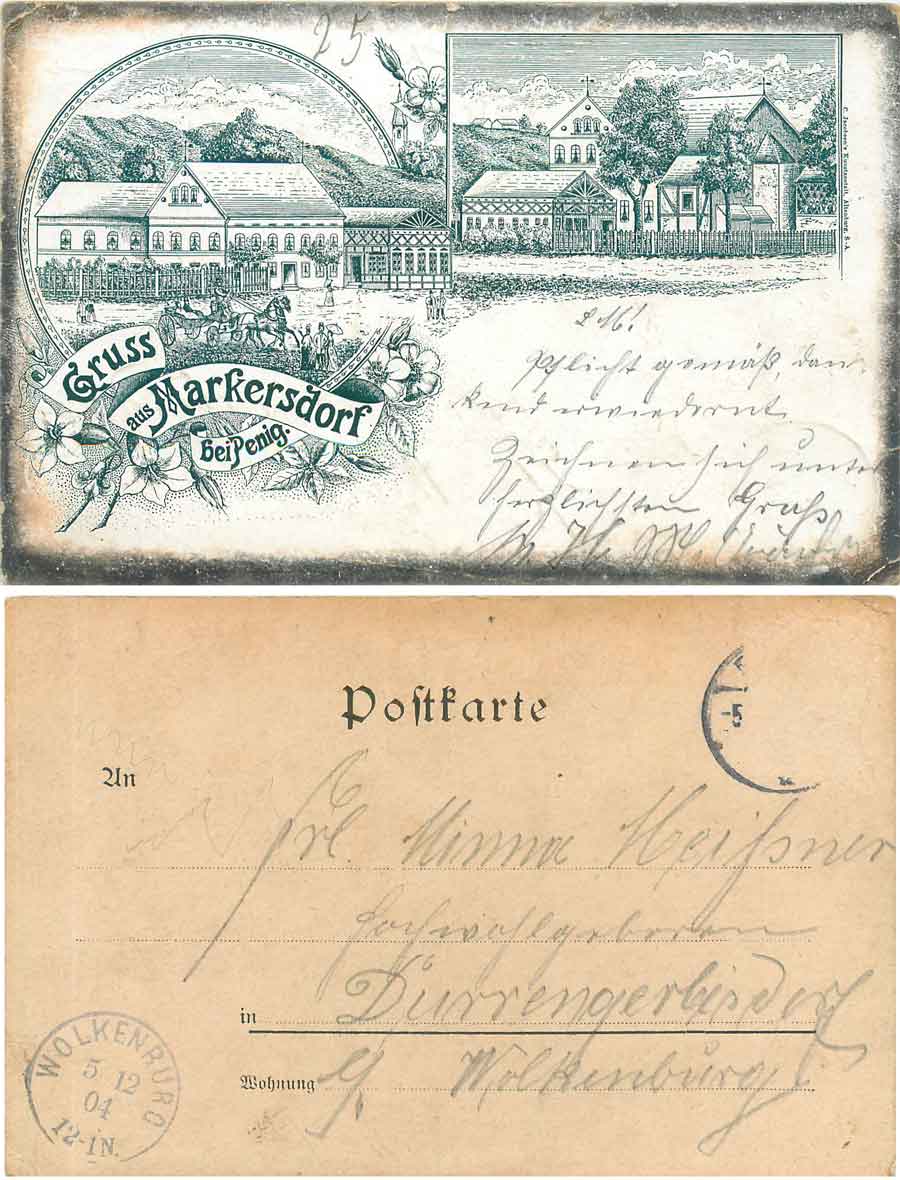 25
Gruss
aus Markersdorf
bei Penig.
L M!
Pflicht gemäß, dan-
kend erwiedernt.
Zeichnen sich unter
herzlichsten Gruß
Postkarte
An
Frl. Minna Meißner
Hochwohlgeboren
in Dürrengerbisdorf
Wohnung b/ Wolkenburg
-5
WOLKENBURG
5 12
04
12-1N.